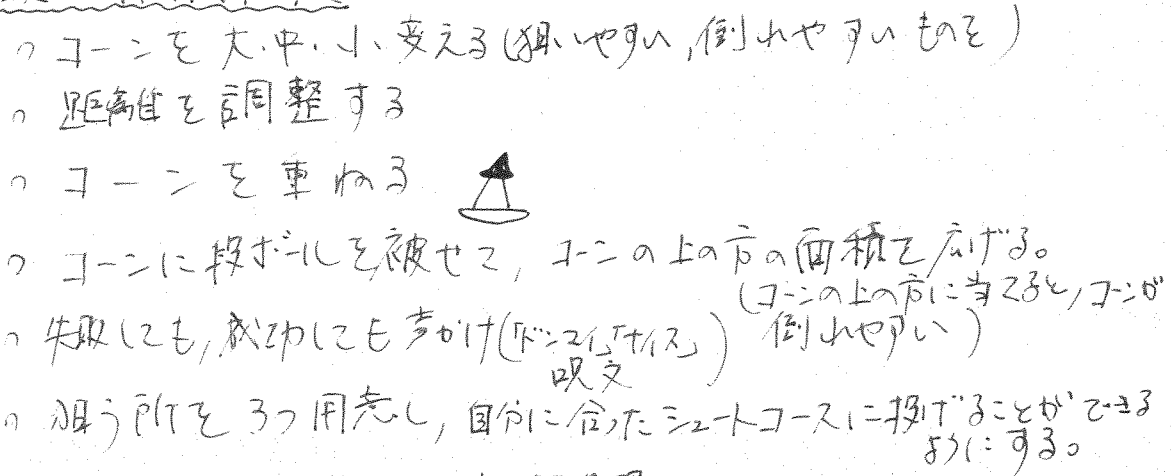 ○ コーンを大・中・小、変える(狙いやすい,倒れやすいものを)
○ 距離を調整する
○ コーンを重ねる
○ コーンに段ボールを被せて, コーンの上の方の面積を広げる。
(コーンの上の方に当てると,コーンが
倒れやすい)
○ 失敗しても,成功しても声かけ(「ドンマイ」「ナイス」)
呪文
○ 狙う所を3つ用意し, 自分に合ったシュートコースに投げることができる
ようにする。